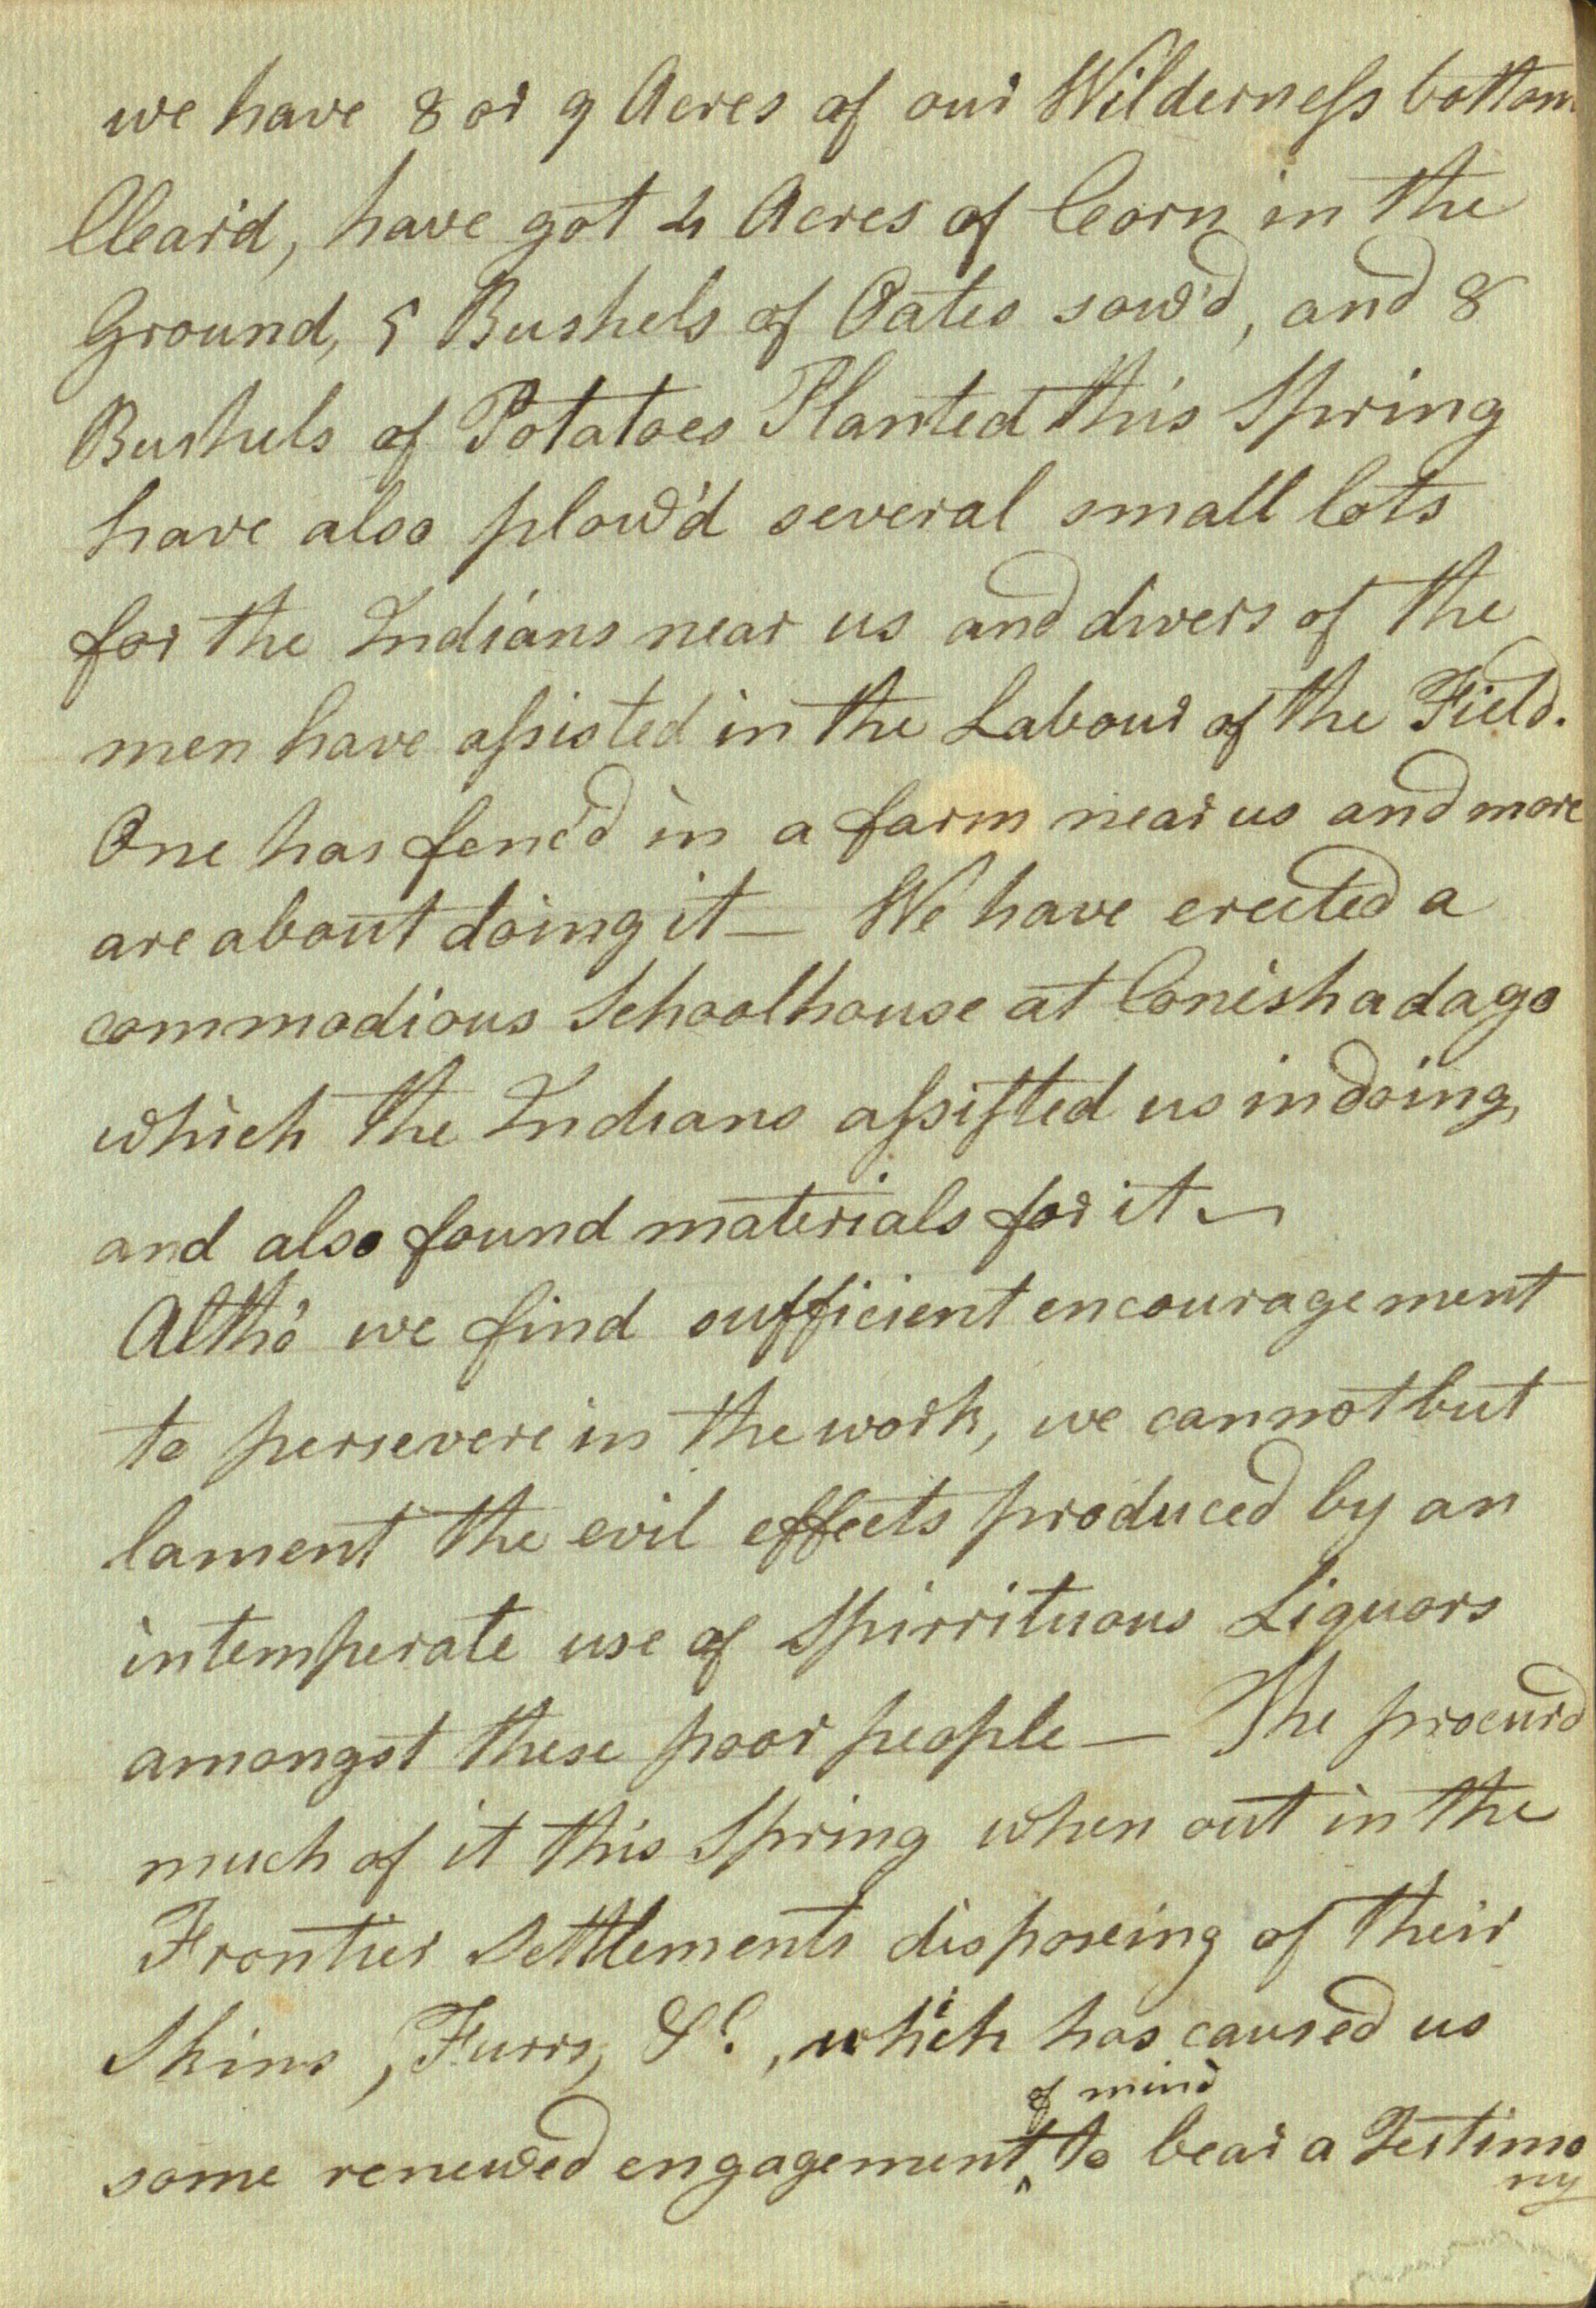 we have 8 or 9 Acres of our Wilderneſs bottom
Clear'd, have got 4 Acres of Corn in the
Ground, 5 Bushels of Oates sow'd, and 8
Bushels of Potatoes Planted this Spring
have also plow'd several small lots
for the Indians near us and divers of the
men have aſsisted in the Labour of the Field.
One has fenc'd in a farm near us and more
are about doing it — We have erected a
commodious Schoolhouse at Conishadago
which the Indians aſsiſted us in doing,
and also found materials for it —
Altho' we find sufficient encouragement
to persevere in the work, we cannot but
lament the evil effects produced by an
intemperate use of Spirrituous Liquors
amongst these poor people — The procur'd
much of it this Spring when out in the
Frontier Settlements disposeing of their
Skins, Furrs, &c., which has caused us
some renewed engagement ^of mind to bear a Testimo
ny